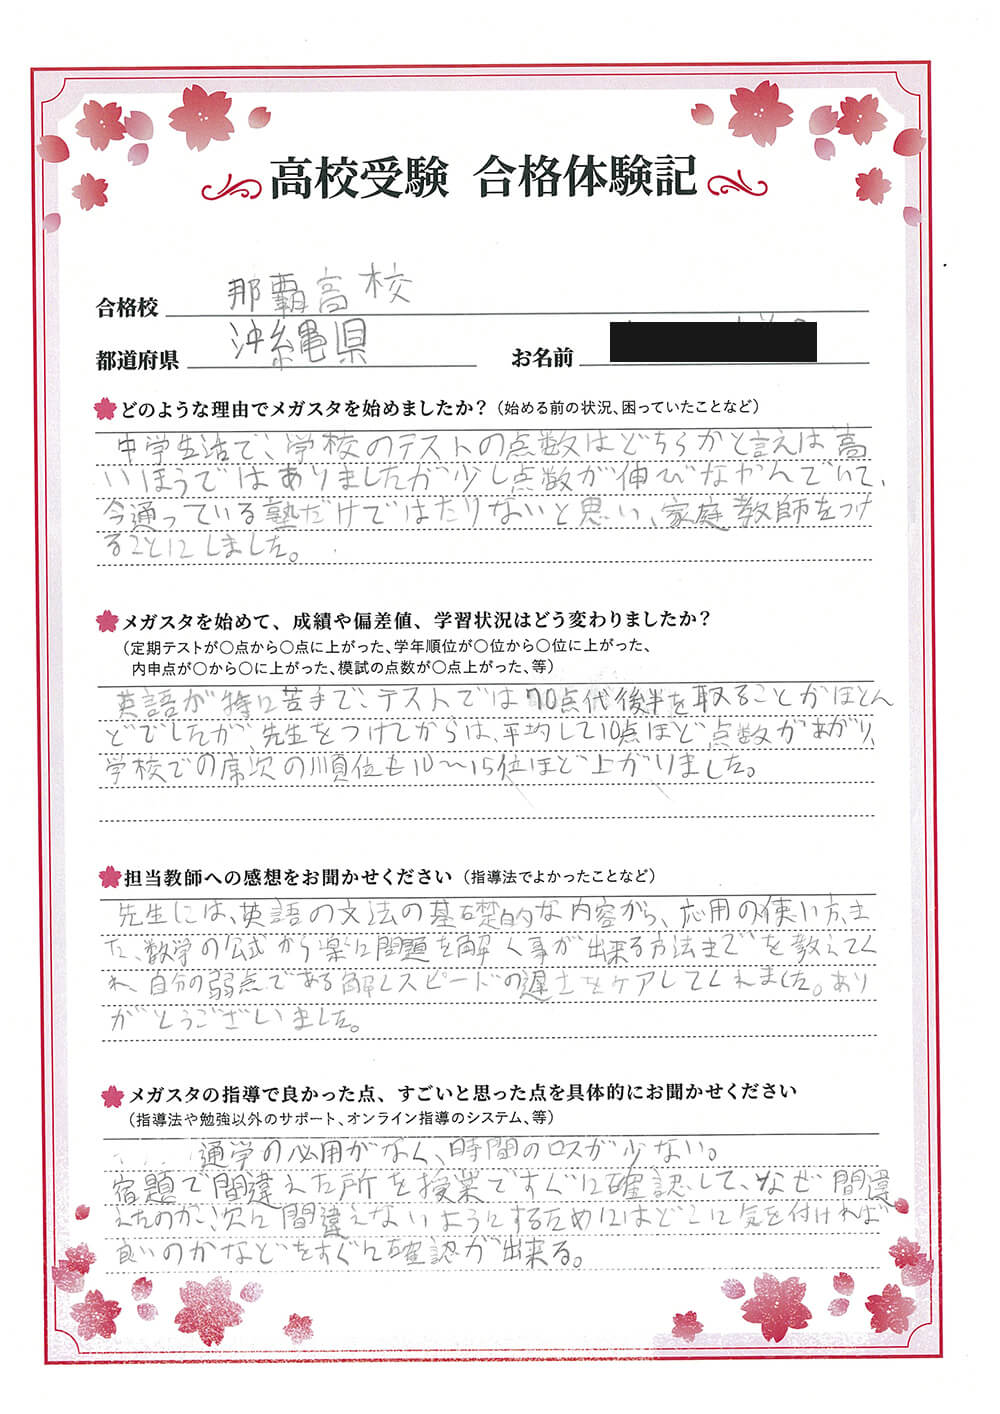 高校受験 合格体験記
合格校 那覇高校
都道府県 沖縄県 お名前
どのような理由でメガスタを始めましたか？（始める前の状況、困っていたことなど）
中学生活で、学校のテストの点数はどちらかと言えは高
いほうではありましたが少し点数が伸びなやんでいて、
今通っている塾だけではたりないと思い、家庭教師をつけ
ることにしました。
メガスタを始めて、成績や偏差値、学習状況はどう変わりましたか？
（定期テストが〇点から〇点に上がった、学年順位が〇位から〇位に上がった、
内申点が〇から〇に上がった、模試の点数が〇点上がった、等）
英語が特に苦手で、テストでは70点代後半を取ることがほとん
どでしたが、先生をつけてからは、平均して10点ほど点数があがり、
学校での席次の順位も10～15位ほど上がりました。
担当教師への感想をお聞かせください（指導法でよかったことなど）
先生には、英語の文法の基礎的な内容から、応用の使い方、ま
た、数学の公式から楽に問題を解く事が出来る方法までを教えてく
れ、自分の弱点である解くスピードの遅さをケアしてくれました。あり
がとうございました。
メガスタの指導で良かった点、すごいと思った点を具体的にお聞かせください
（指導法や勉強以外のサポート、オンライン指導のシステム、等）
通学の必用がなく、時間のロスが少ない。
宿題で間違えた所を授業ですぐに確認して、なぜ間違
えたのか、次に間違えないようにするためにはどこに気を付ければ
良いのかなどをすぐに確認が出来る。